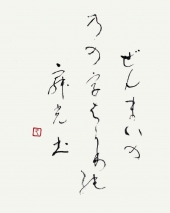 ぜんまいの
のの字ばかりの
寂光土